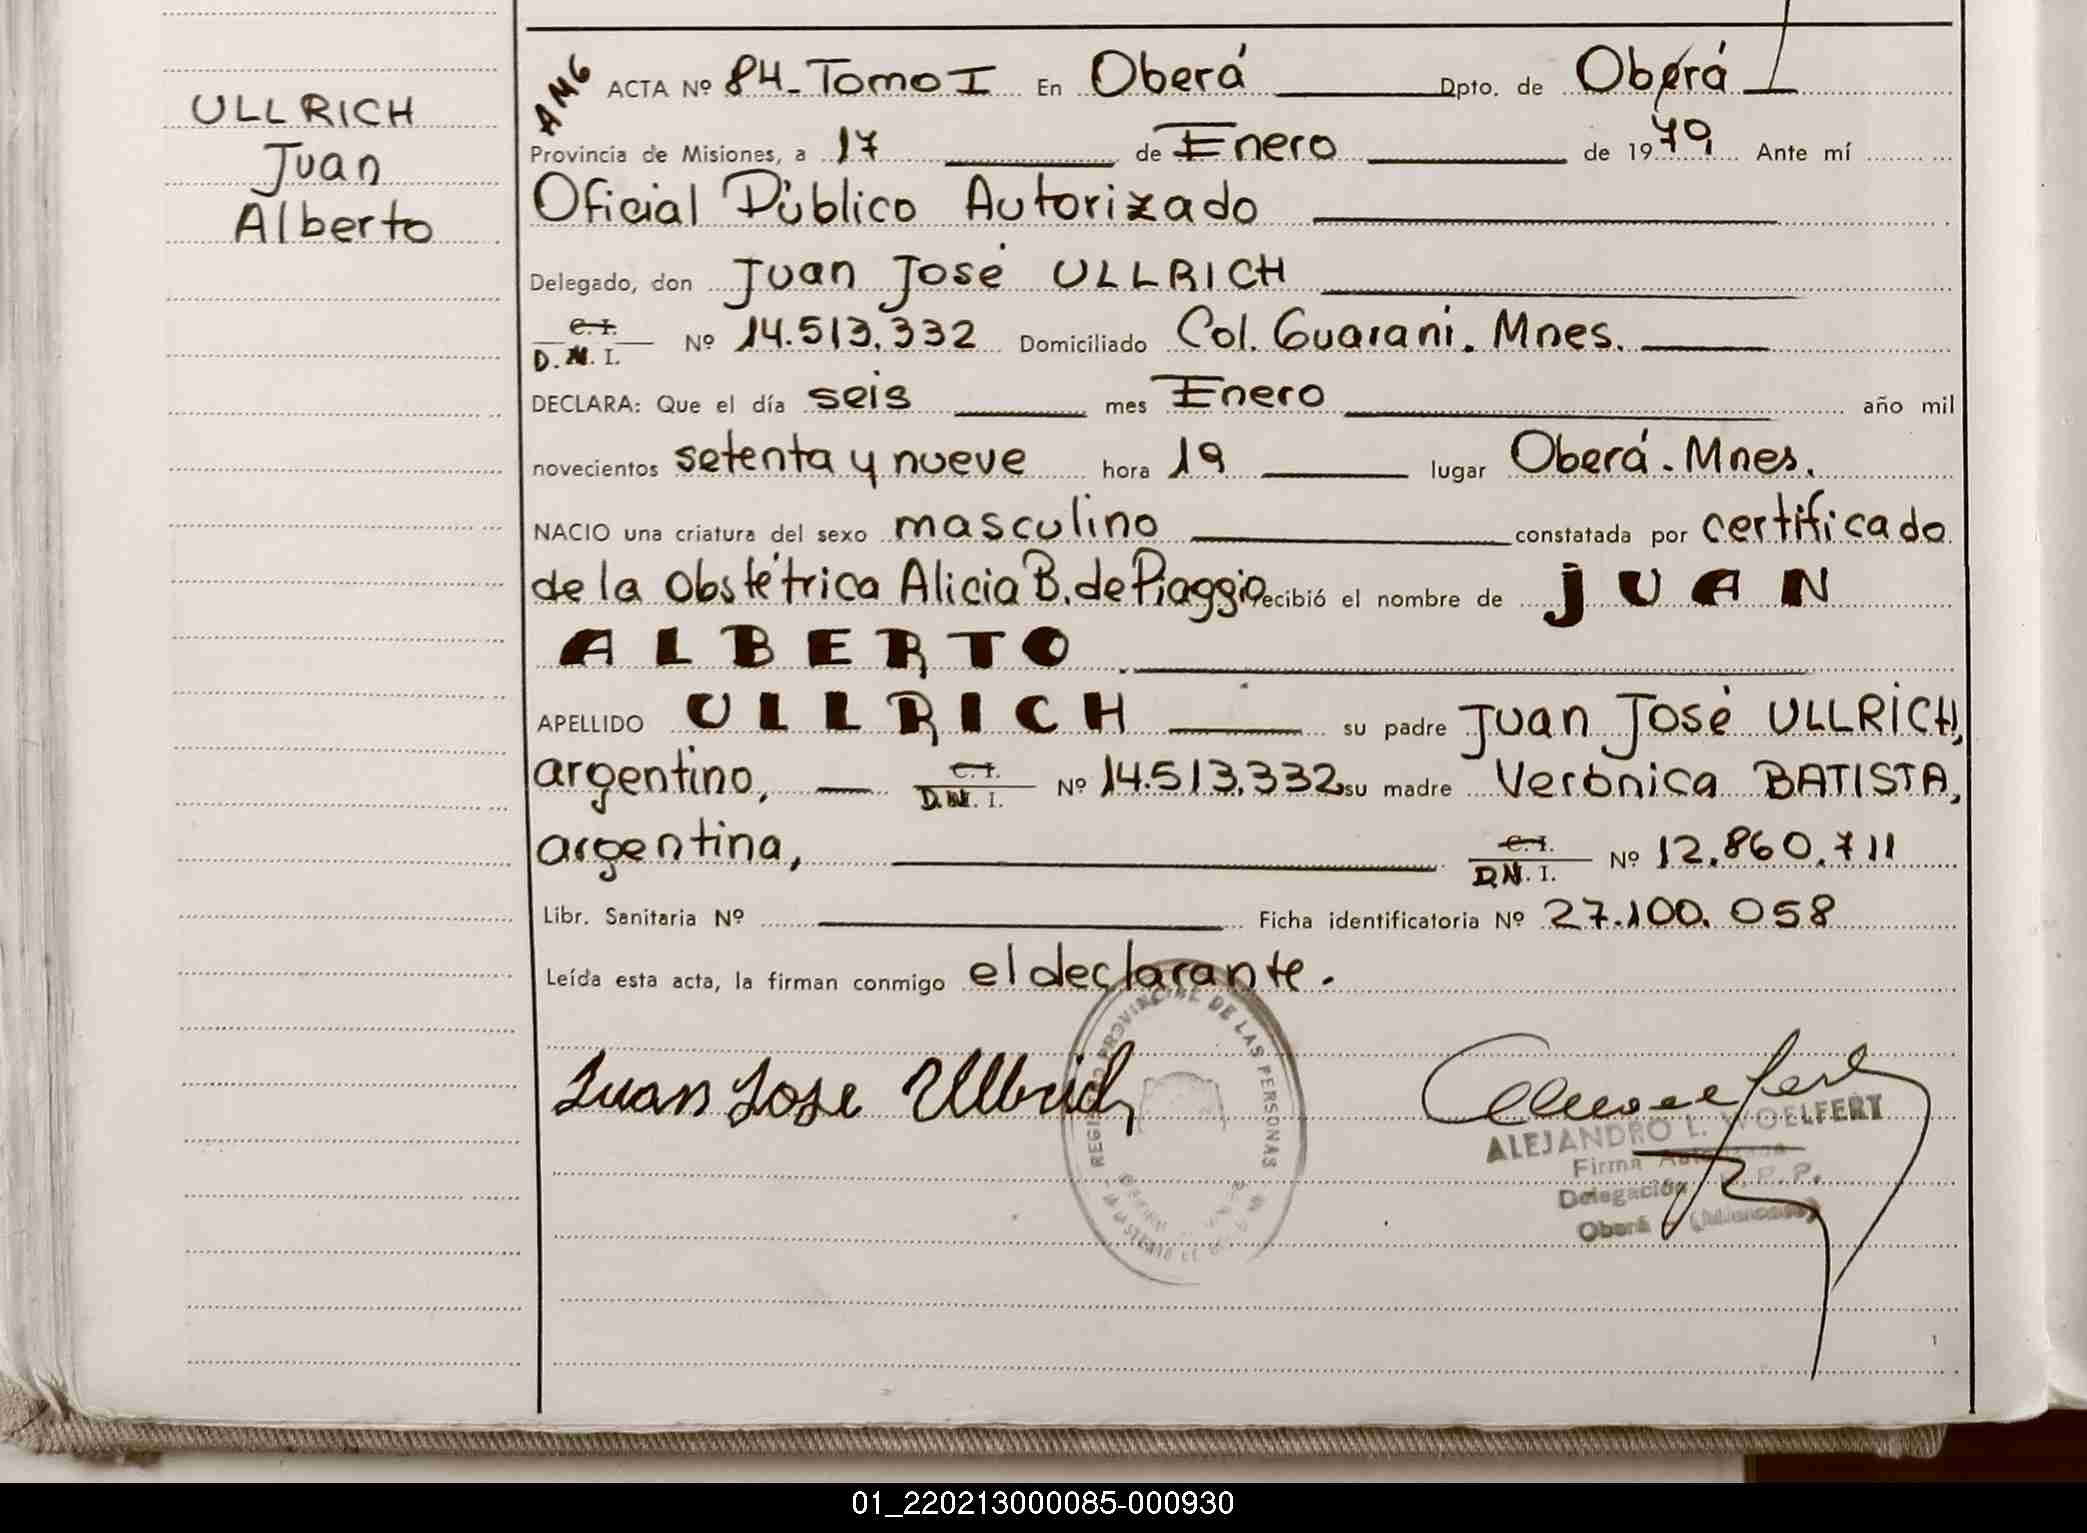 ULLRICH
Juan
Alberto
AMG
ACTA Nº 84-Tomo I En Oberá Dpto. de Oberá
Provincia de Misiones, a 17 de Enero de 1979 Ante mí
Oficial Público Autorizado
Delegado, don Juan José ULLRICH
C.I.
D.N.I. Nº 14.513.332 Domiciliado Col. Guarani. Mnes.
DECLARA: Que el día seis mes Enero año mil
novecientos setenta y nueve hora 19 lugar Oberá-Mnes.
NACIO una criatura del sexo masculino constatada por certificado
de la Obstétrica Alicia B. de Piaggio recibió el nombre de JUAN
ALBERTO
APELLIDO ULLRICH su padre Juan José ULLRICH,
argentino, C.I. D.N.I. Nº 14.513.332 su madre Verónica BATISTA,
argentina, C.I. D.N.I. Nº 12.860.711
Libr. Sanitaria Nº Ficha identificatoria Nº 27.100.058
Leída esta acta, la firman conmigo el declarante.
Juan Jose Ullrich
REGISTRO PROVINCIAL DE LAS PERSONAS
ALEJANDRO L. WOELFERT
Firma Autorizada
Delegación R.P.P.
Oberá - (Misiones)
1
01_220213000085-000930